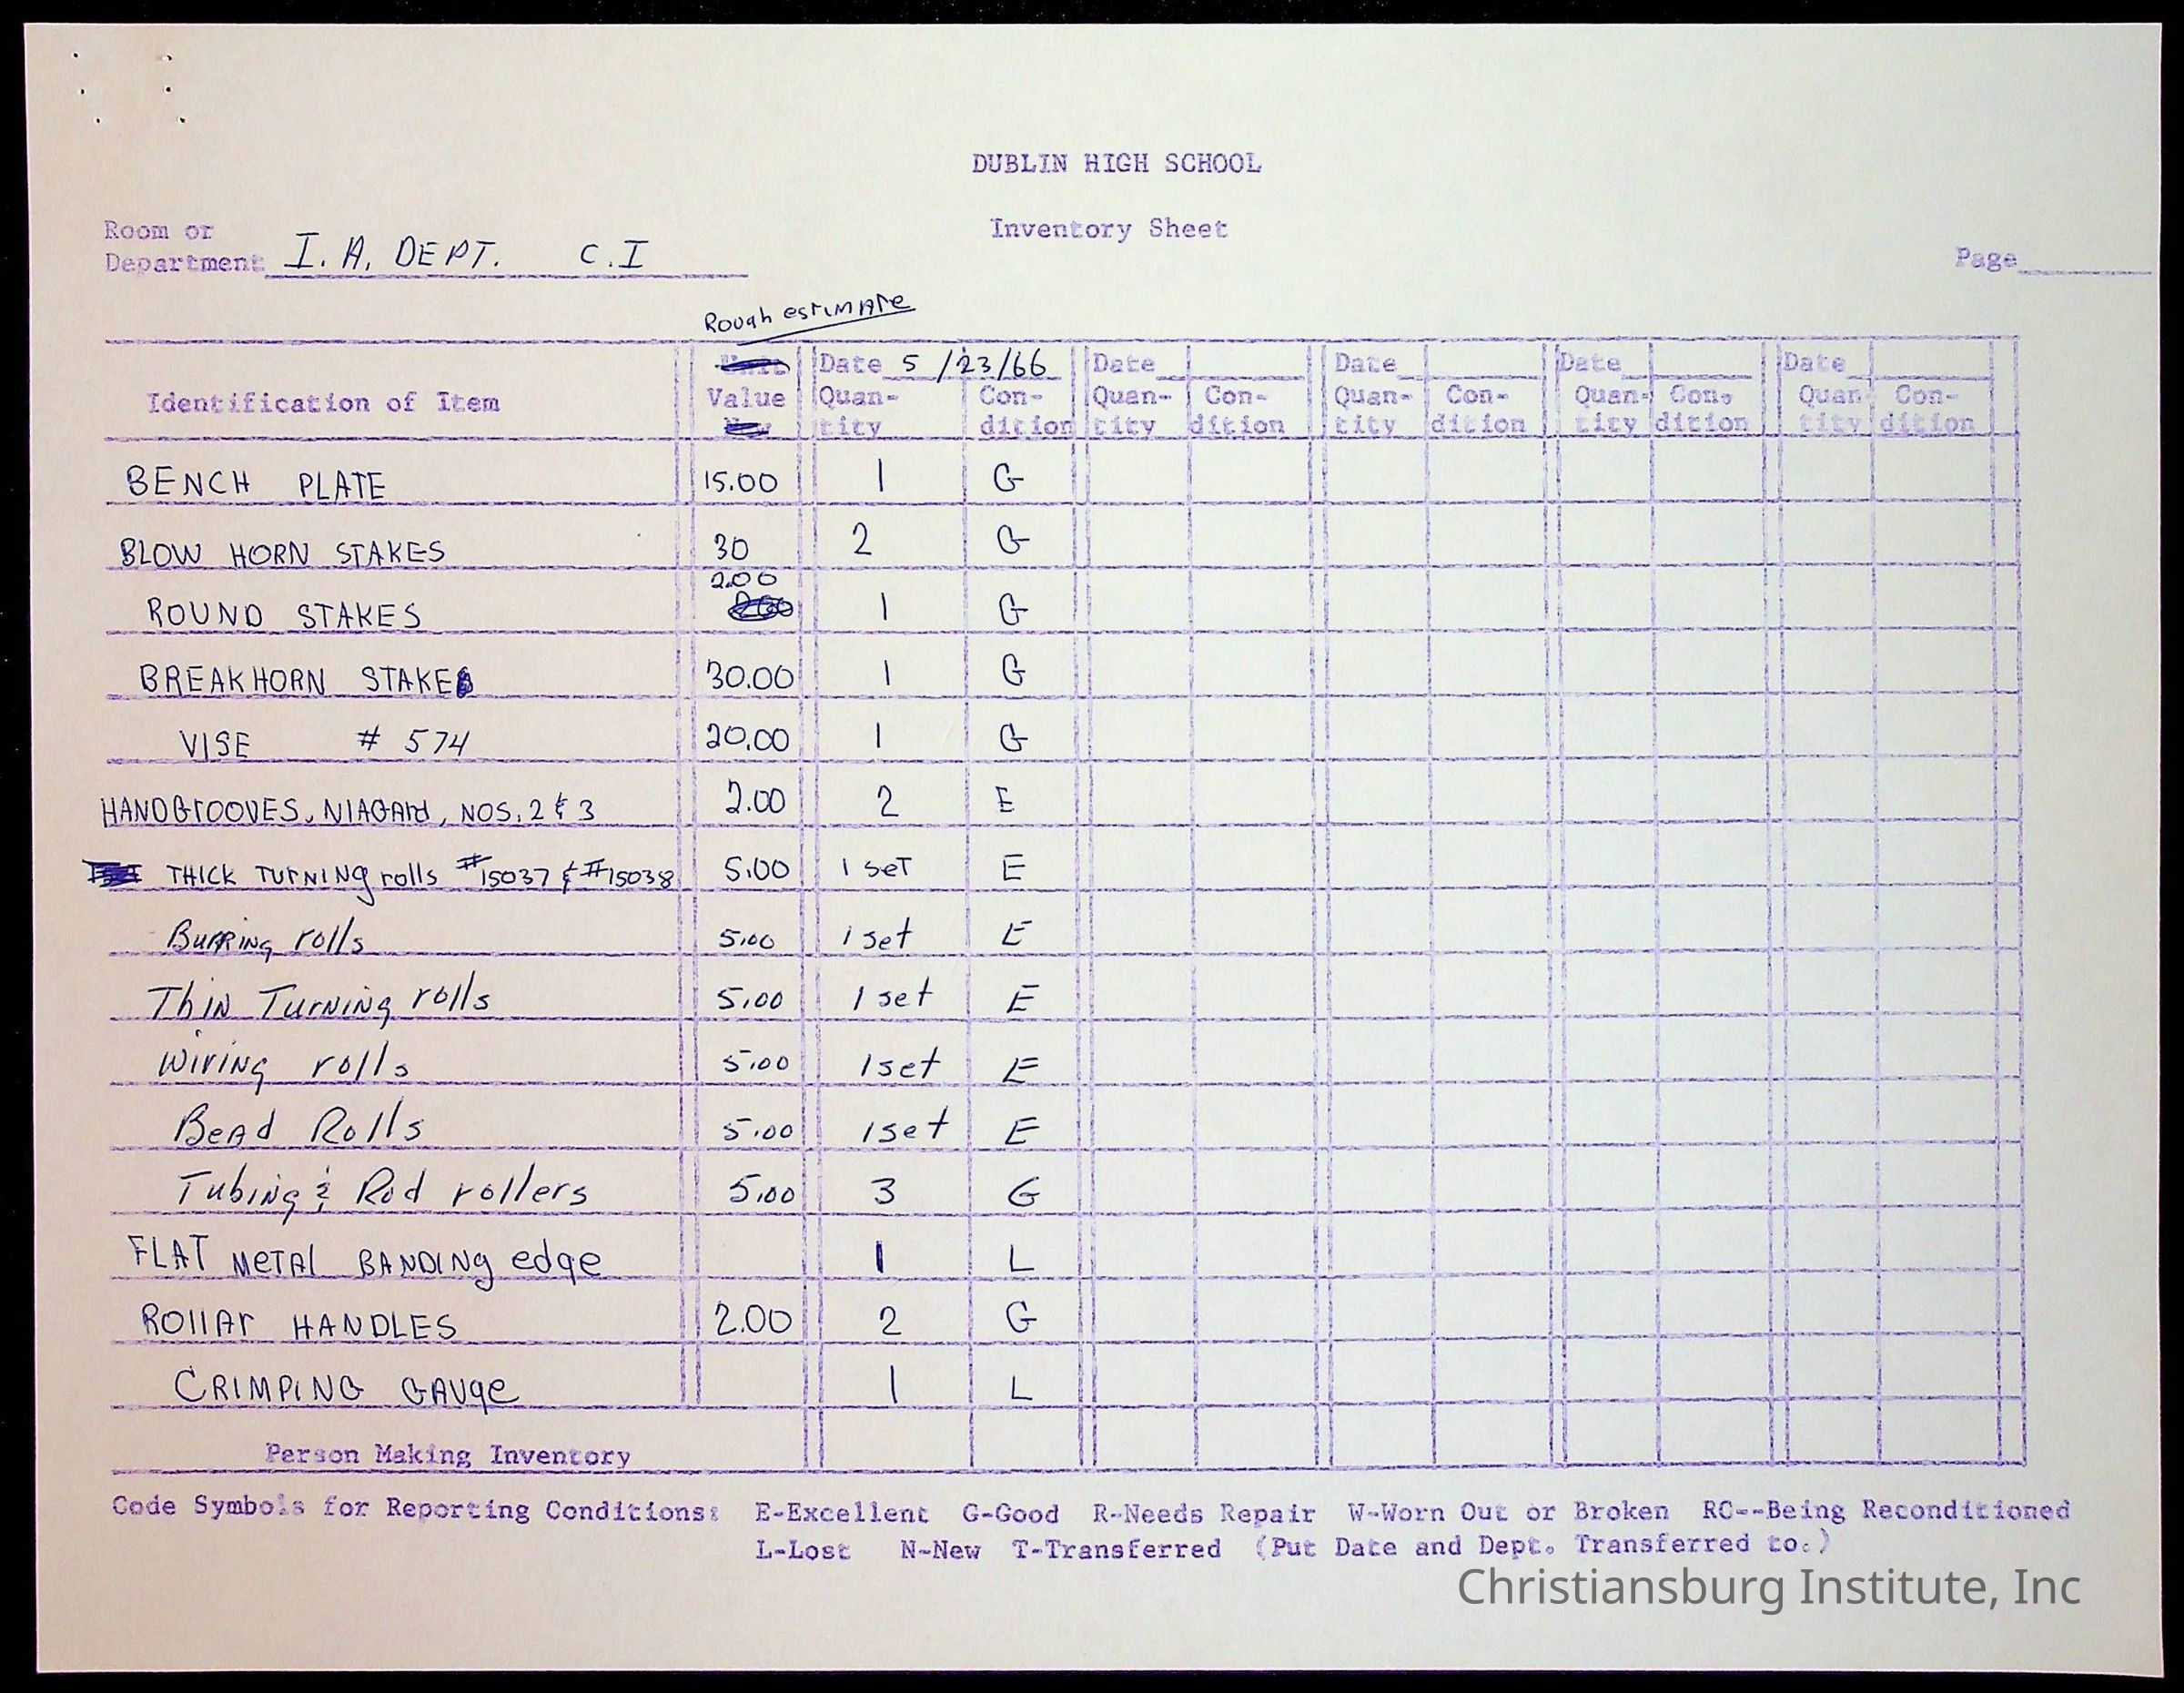 DUBLIN HIGH SCHOOL
Inventory Sheet
Room or
Department I. A. DEPT. C.I
Page
Rough estimate
Identification of Item Value Date 5/23/66 Date Date Date Date
Quan- Con- Quan- Con- Quan- Con- Quan- Con. Quan Con-
tity dition tity dition tity dition tity dition tity dition
BENCH PLATE 15.00 1 G
BLOW HORN STAKES 30 2 G
ROUND STAKES 2.00 1 G
BREAKHORN STAKE 30.00 1 G
VISE # 574 20.00 1 G
HANDGrOOVES, NIAGArd, NOS. 2 & 3 2.00 2 E
THICK TUrNINg rolls #15037 & #15038 5.00 1 seT E
BurRiNg rolls 5.00 1 set E
ThiN TurNiNg rolls 5.00 1 set E
WiriNg rolls 5.00 1 set E
BeAd Rolls 5.00 1 set E
Tubing & Rod rollers 5.00 3 G
FLAT MeTAl BANDINg edge 1 L
ROllAr HANDLES 2.00 2 G
CRIMPiNG GAUge 1 L
Person Making Inventory
Code Symbols for Reporting Conditions: E-Excellent G-Good R-Needs Repair W-Worn Out or Broken RC--Being Reconditioned
L-Lost N-New T-Transferred (Put Date and Dept. Transferred to.)
Christiansburg Institute, Inc